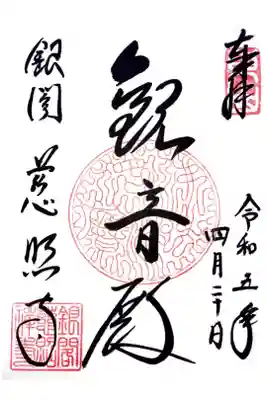 奉拝
令和五年
四月二十日
観音殿
銀閣 慈照寺